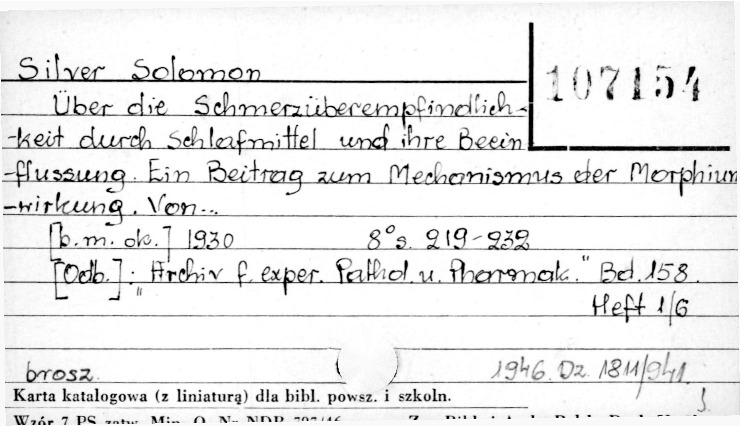 Silver Solomon
107154
Über die Schmerzüberempfindlich-
-keit durch Schlafmittel und ihre Beein
-flussung. Ein Beitrag zum Mechanismus der Morphium
-wirkung. Von...
[b.m. dr.] 1930 8° s. 219-232
[Odb.]: "Archiv f. exper. Pathol. u. Pharmak." Bd. 158.
Heft 1/6
brosz. 1946. Dz. 1811/941.
Karta katalogowa (z liniaturą) dla bibl. powsz. i szkoln.
Wzór 7 PS zatw. Min. O. Nr NDP